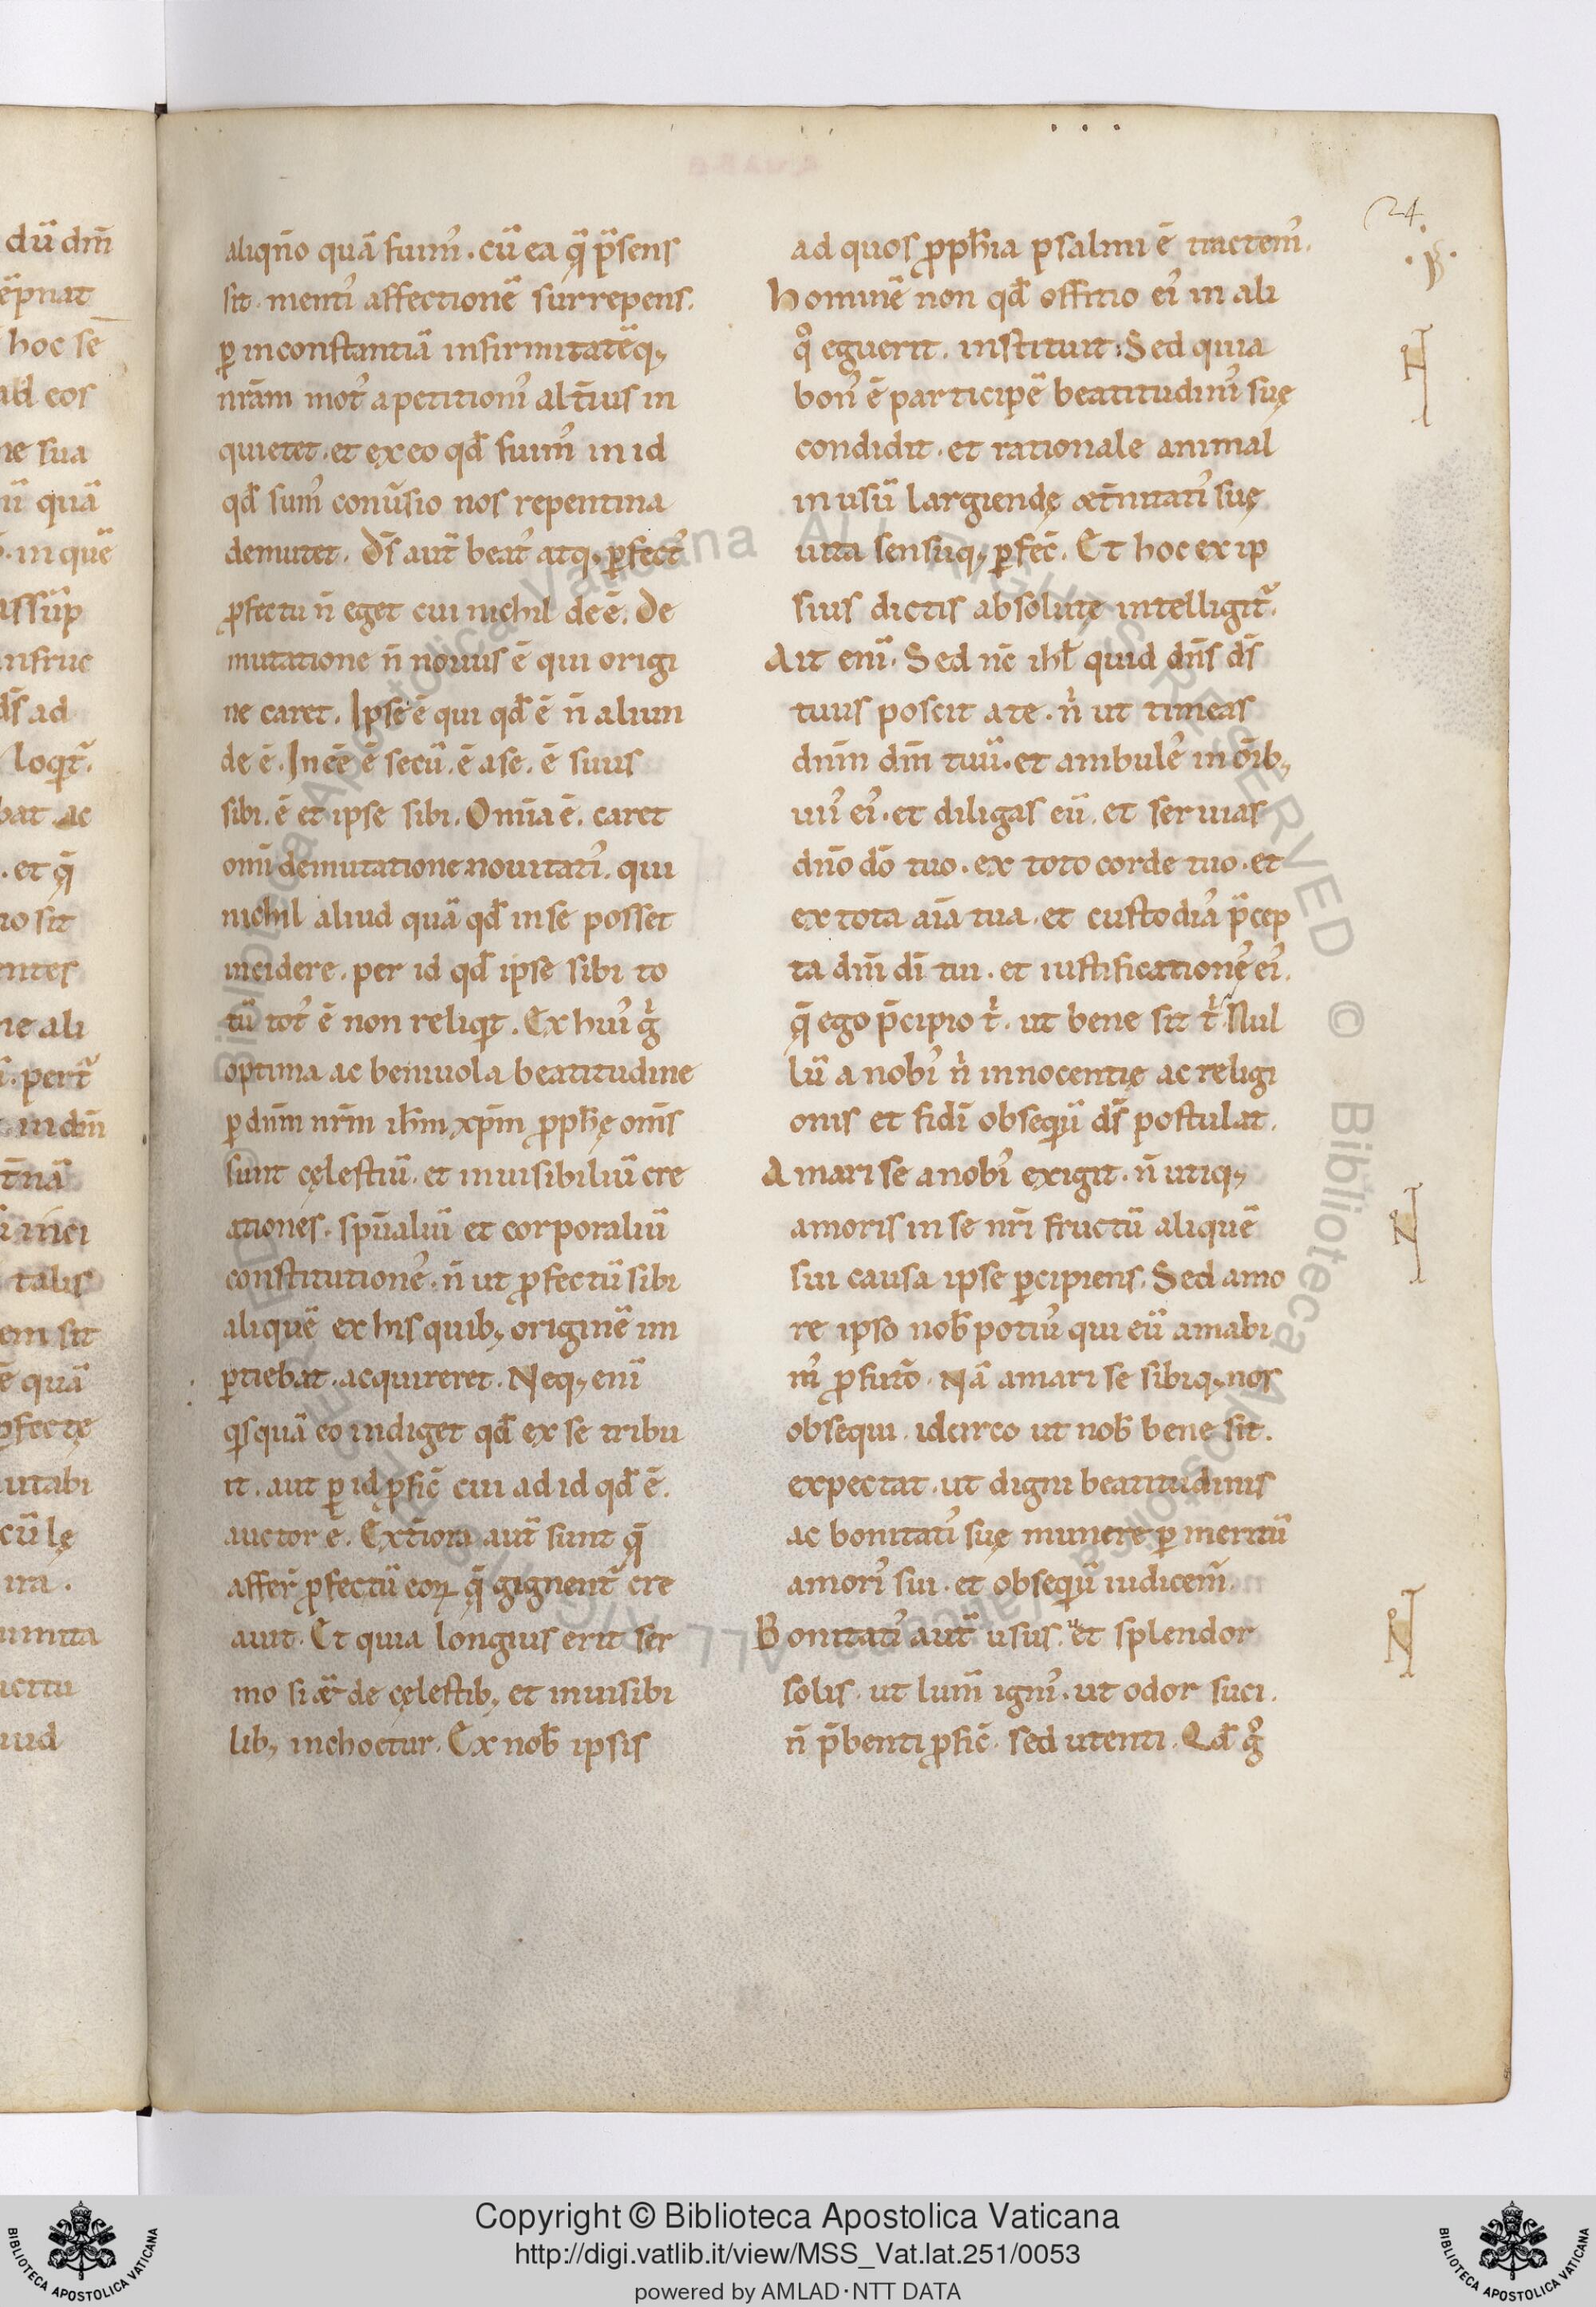 24.
·ꝓ·
aliqn̄o quā fuim᾿. cū ea q̄ p̄sens
sit. menti᾿ affectionē surrepens.
ꝑ inconstantiā infirmitatēq;
nrām mot᾿ apetitioni᾿ alt̄ius in
quietet. et ex eo qđ fuim᾿ in id
qđ sum᾿ conūsio nos repentina
demutet. Ds̄ aut̄ beat᾿ atq; ꝑfect᾿
ꝓfectu n̄ eget cui nichil de ē. De
mutatione n̄ nouus ē qui origi
ne caret. Ipse ē qui qđ ē n̄ aliun
de ē. In eē ē secū. ē a se. ē suus
sibi. ē et ipse sibi. Om̄ia ē. caret
omī demutatione nouitati᾿. qui
nichil aliud quā qđ in se posset
incidere. per id qđ ipse sibi to
tū tot᾿ ē non reliqit. Ex hui᾿ gͥ
optima ac beniuola beatitudine
ꝑ dnm̄ nrm̄ ihm̄ xpm̄ ꝓph̄ę om̄s
sunt cęlestiū. et inuisibiliū cre
ationes. sp̄ualiū et corporaliū
constitutione᾿. n̄ ut ꝓfectū sibi
aliquē ex his quib; originē im
ꝑtiebat. acquireret. Neq; enī
qisquā eo indiget qđ ex se tribu
it. aut ꝑ id ꝓfic̄ cui ad id qđ ē.
auctor ē. Ext̄iora aut̄ sunt q̄
affer̄ ꝓfectū eoꝝ q̄ gignent̄ cre
auit. Et quia longius erit ser
mo si de cęlestib; et inuisibi
lib; inchoetur. Ex nob̄ ipsis
ad quos ꝓph̄ia psalmi ē tractem᾿.
Hominē non qđ offitio ei᾿ in ali
qͦ eguerit. instituit. Sed quia
bon᾿ ē participē beatitudini᾿ suę
condidit. et rationale animal
in usū largiendę æt̄nitati᾿ suę
uita sensuq; ꝑfec̄. Et hoc ex ip
sius dictis absolute intelligit̄.
Ait enī. Sed nc̄ ihl̄ quid dn̄s ds̄
tuus poscit a te. nͥ ut timeas
dnm̄ dm̄ tuū. et ambule᾿ in oīb;
uii᾿ ei᾿. et diligas eū. et seruias
dn̄o dō tuo. ex toto corde tuo. et
ex tota aīa tua. et custodia᾿ p̄cep
ta dnī dī tui. et iustificatione᾿ ei᾿.
q̄ ego p̄cipio tͥ. ut bene sit tͥ. Nul
lū a nobi᾿ nͥ innocentię ac religi
onis et fidī obseqiū ds̄ postulat.
Amari se a nobi᾿ exigit. n̄ utiq;
amoris in se nrī fructū aliquē
sui causa ipse ꝑcipiens. Sed amo
re ipso nob̄ potiu᾿ qui eū amabi
m᾿ ꝓfuto᾿. Nā amari se sibiq; nos
obsequi. idcirco ut nob̄ bene sit.
expectat. ut digni beatitudinis
ac bonitati᾿ suę munere ꝑ meritū
amori᾿ sui. et obseqiū iudicem̄.
Bonitati᾿ aut̄ usus. ut et splendor
solis. ut lum̄ igni᾿. ut odor suci.
n̄ p̄benti ꝓfic̄. sed utenti. Qđ gͦ
N
N
N
Copyright © Biblioteca Apostolica Vaticana
http://digi.vatlib.it/view/MSS_Vat.lat.251/0053
powered by AMLAD·NTT DATA
BIBLIOTECA APOSTOLICA VATICANA
BIBLIOTECA APOSTOLICA VATICANA